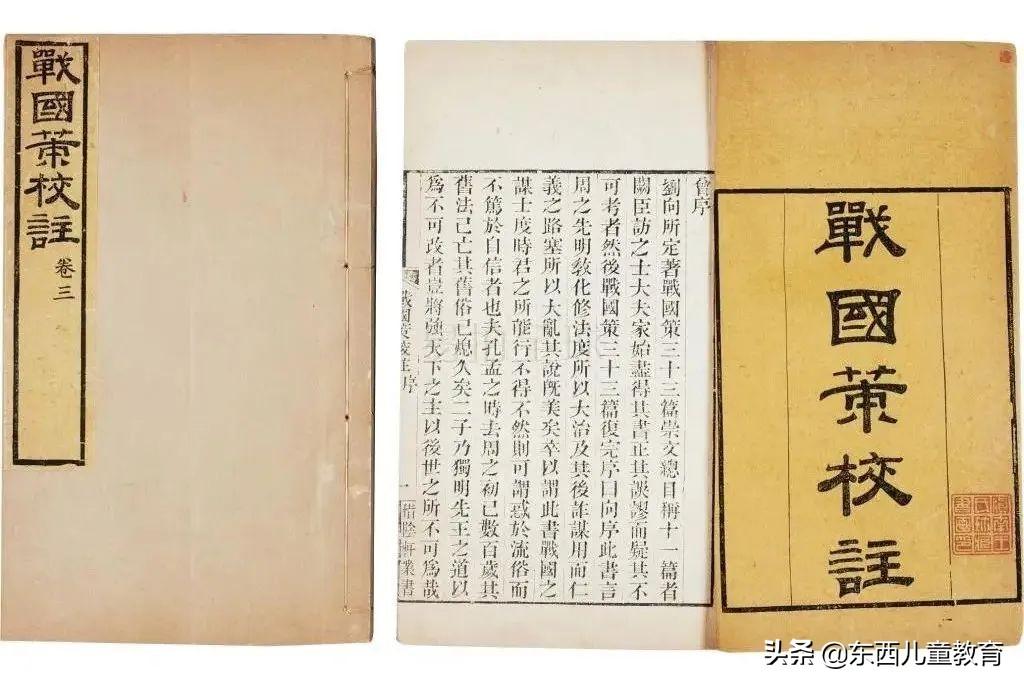 戰國策校註
卷三
戰國策校註
曾序
劉向所定著戰國策三十三篇崇文總目稱十一篇者
闕臣訪之士大夫家始盡得其書正其誤謬而疑其不
可考者然後戰國策三十三篇復完序曰向序此書言
周之先明敎化修法度所以大治及其後詐謀用而仁
義之路塞所以大亂其說旣美矣卒以謂此書戰國之
謀士度時君之所能行不得不然則可謂惑於流俗而
不篤於自信者也夫孔孟之時去周之初已數百歲其
舊法已亡其舊俗已熄久矣二子乃獨明先王之道以
爲不可改者豈將強天下之主以後世之所不可爲哉
序 一 惜陰軒叢書
头条 @东西儿童教育